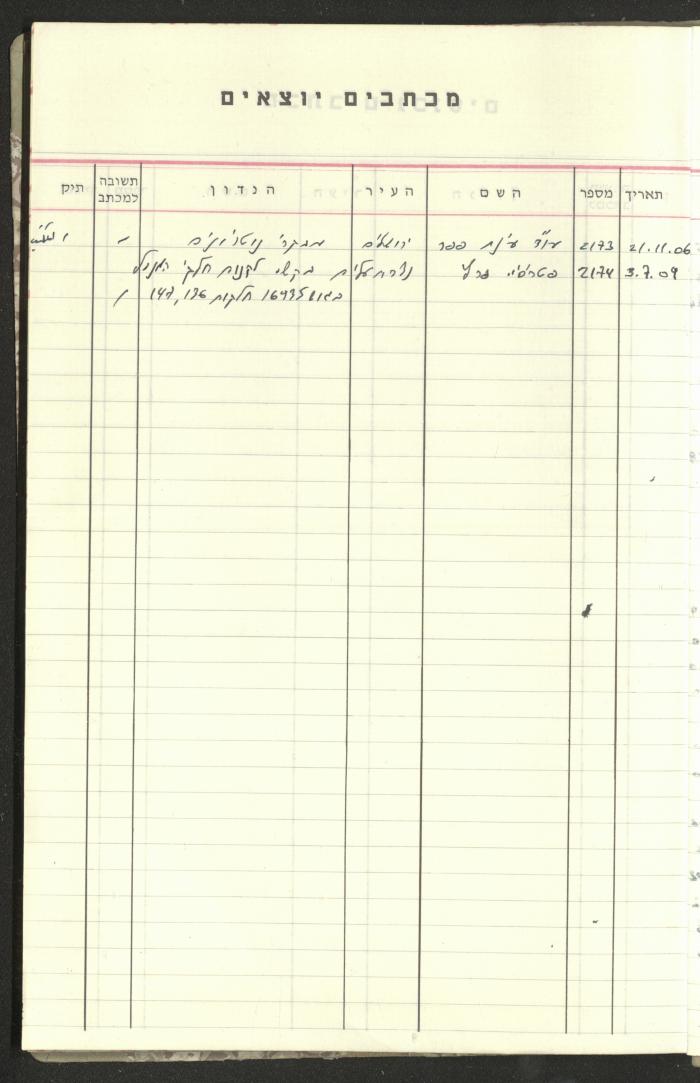 מכתבים יוצאים
תאריך מספר השם העיר הנדון תשובה למכתב תיק
21.11.06 2173 עו"ד עינת ספר ירושלים מבקרי נוטריונים -
3.7.09 2174 נצרת עלית בקשה לקנות חלקי
בגוש 16935 חלקות 126, 147